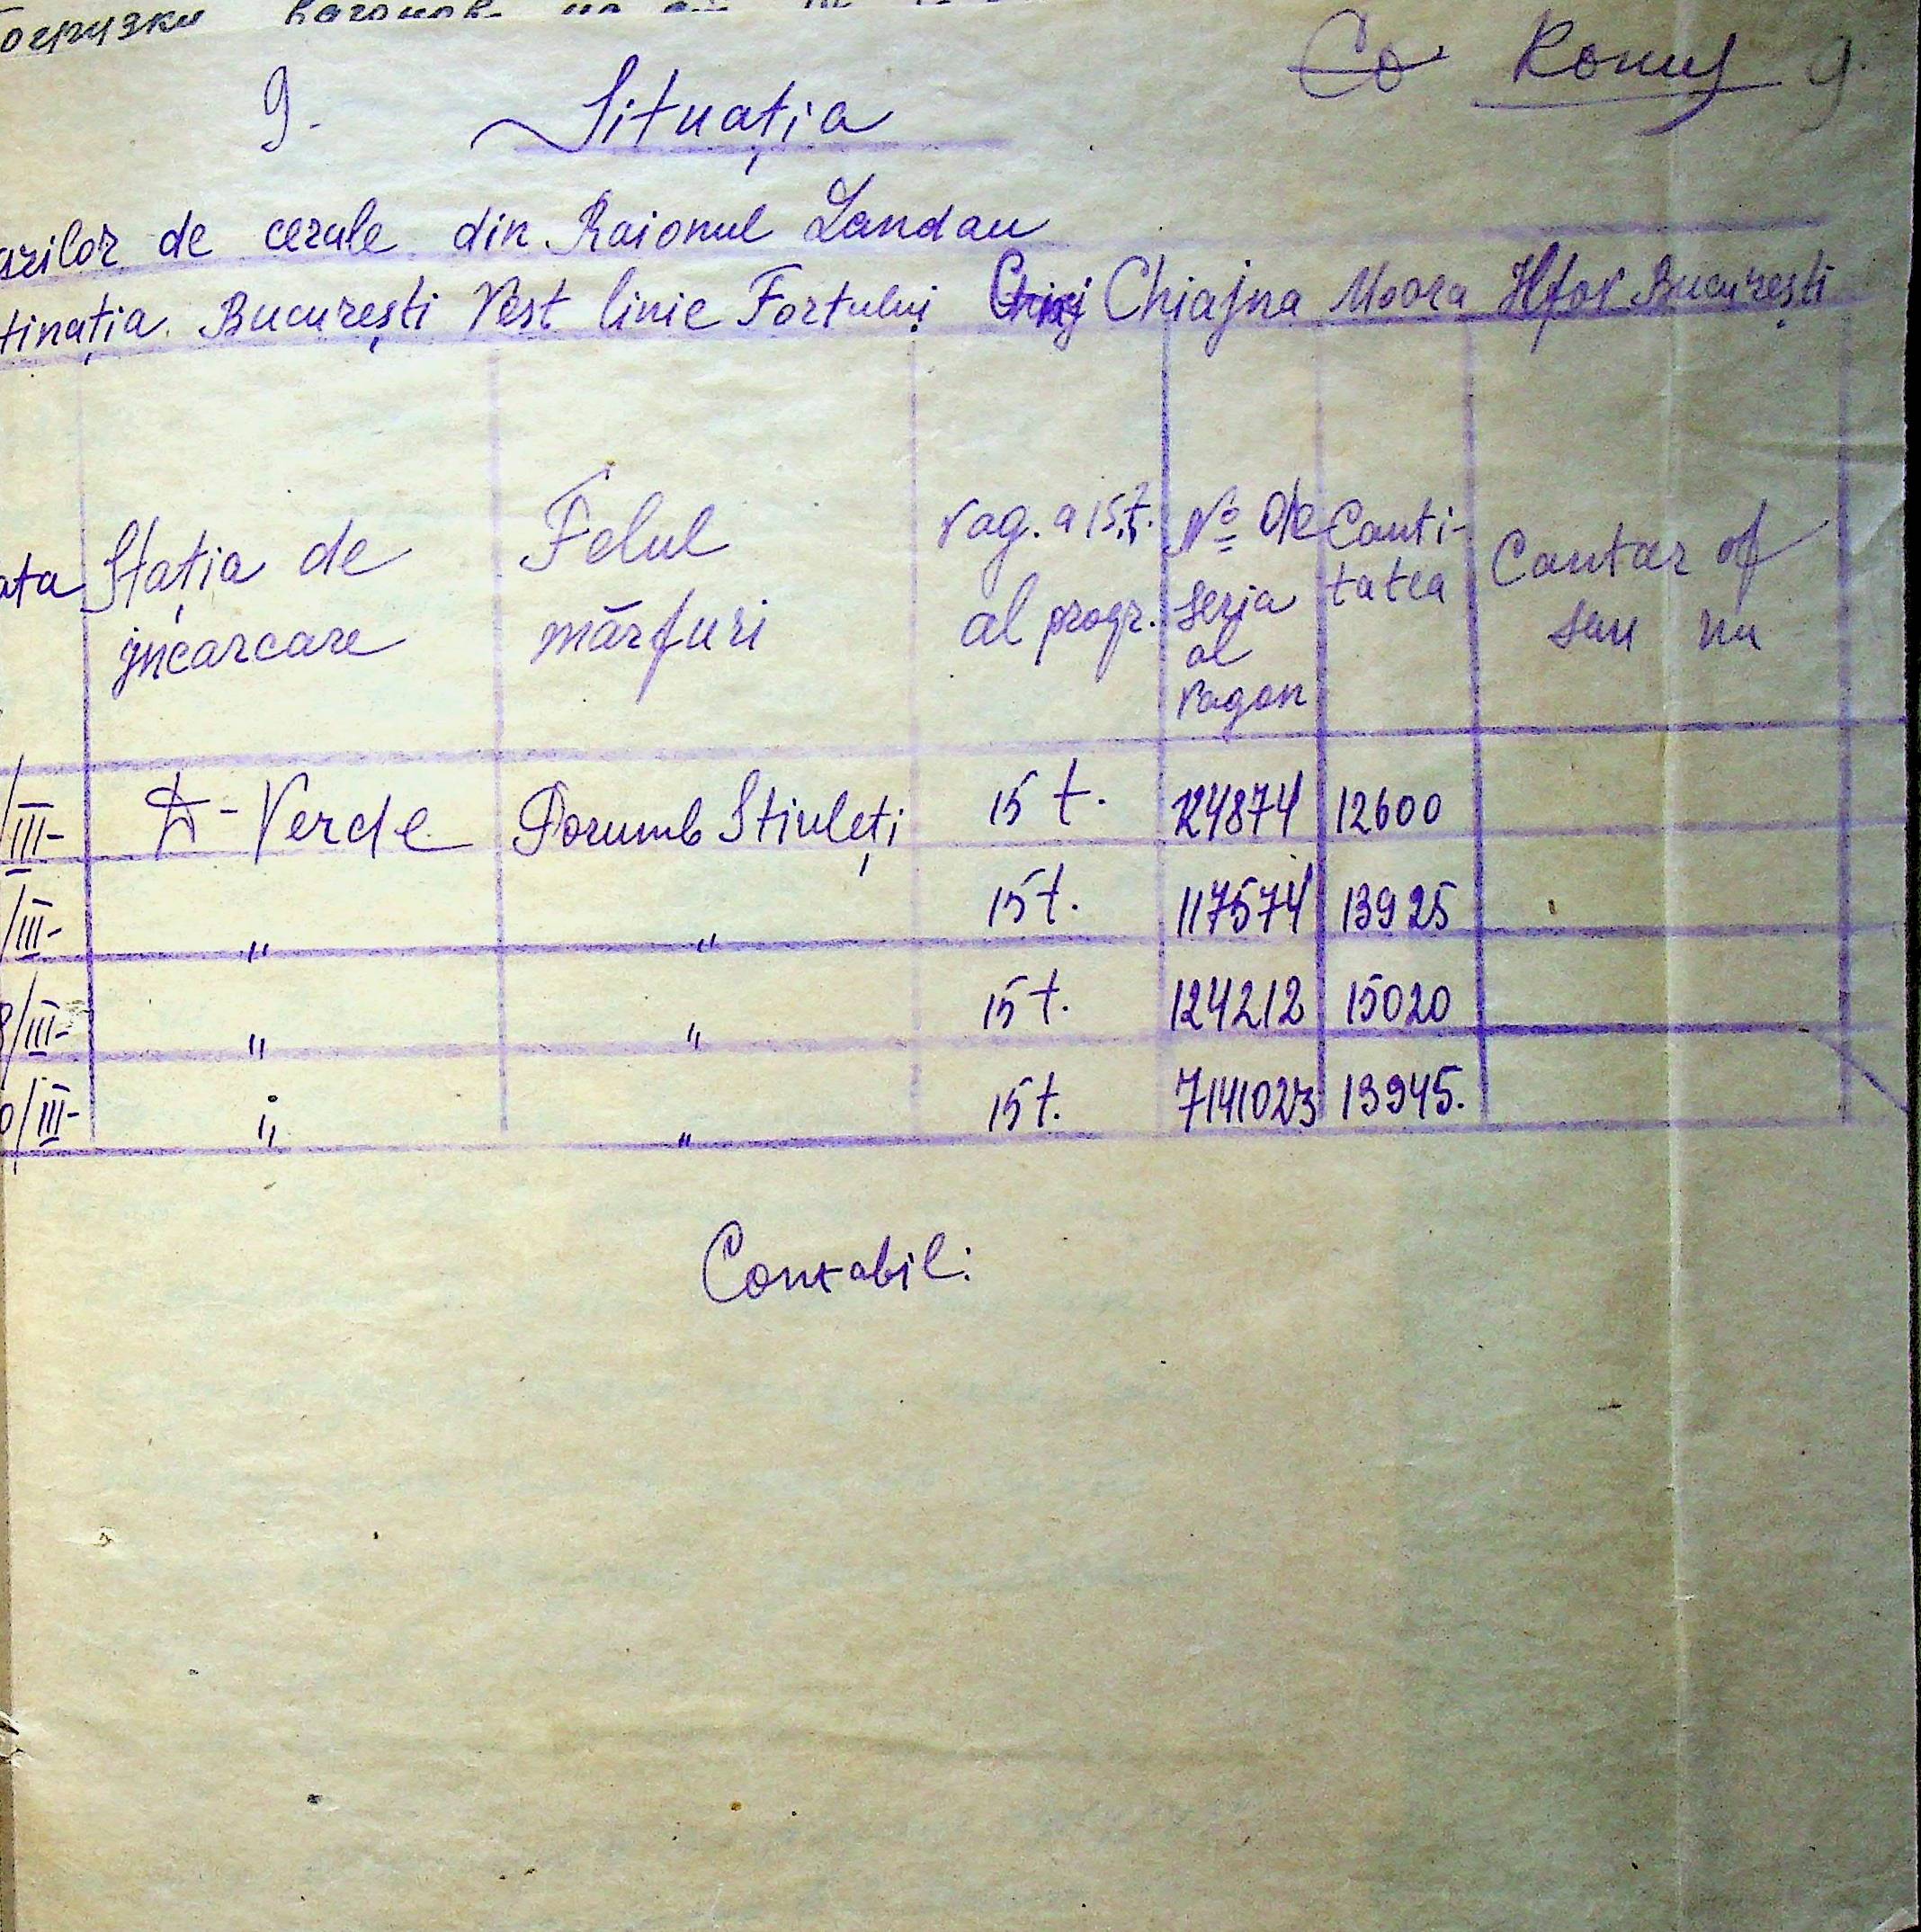 огрузки вагонов
Co Romuș 9.
9- Situația
arilor de cerale din Raionul Landau
tinația. București Vest linie Fortului Chiajna Moara Ilfov București
ata Stația de jncarcare Felul mărfuri vag. a 15.t. al progr. No de seria al vagon Canti-tatea Cantar of sau nu
/III- D-Verde Porumb Stiuleți 15 t. 124874 12600
/III- " " 15 t. 117574 13925
8/III- " " 15 t. 124212 15020
0/III- " " 15 t. 7141023 13945.
Contabil: